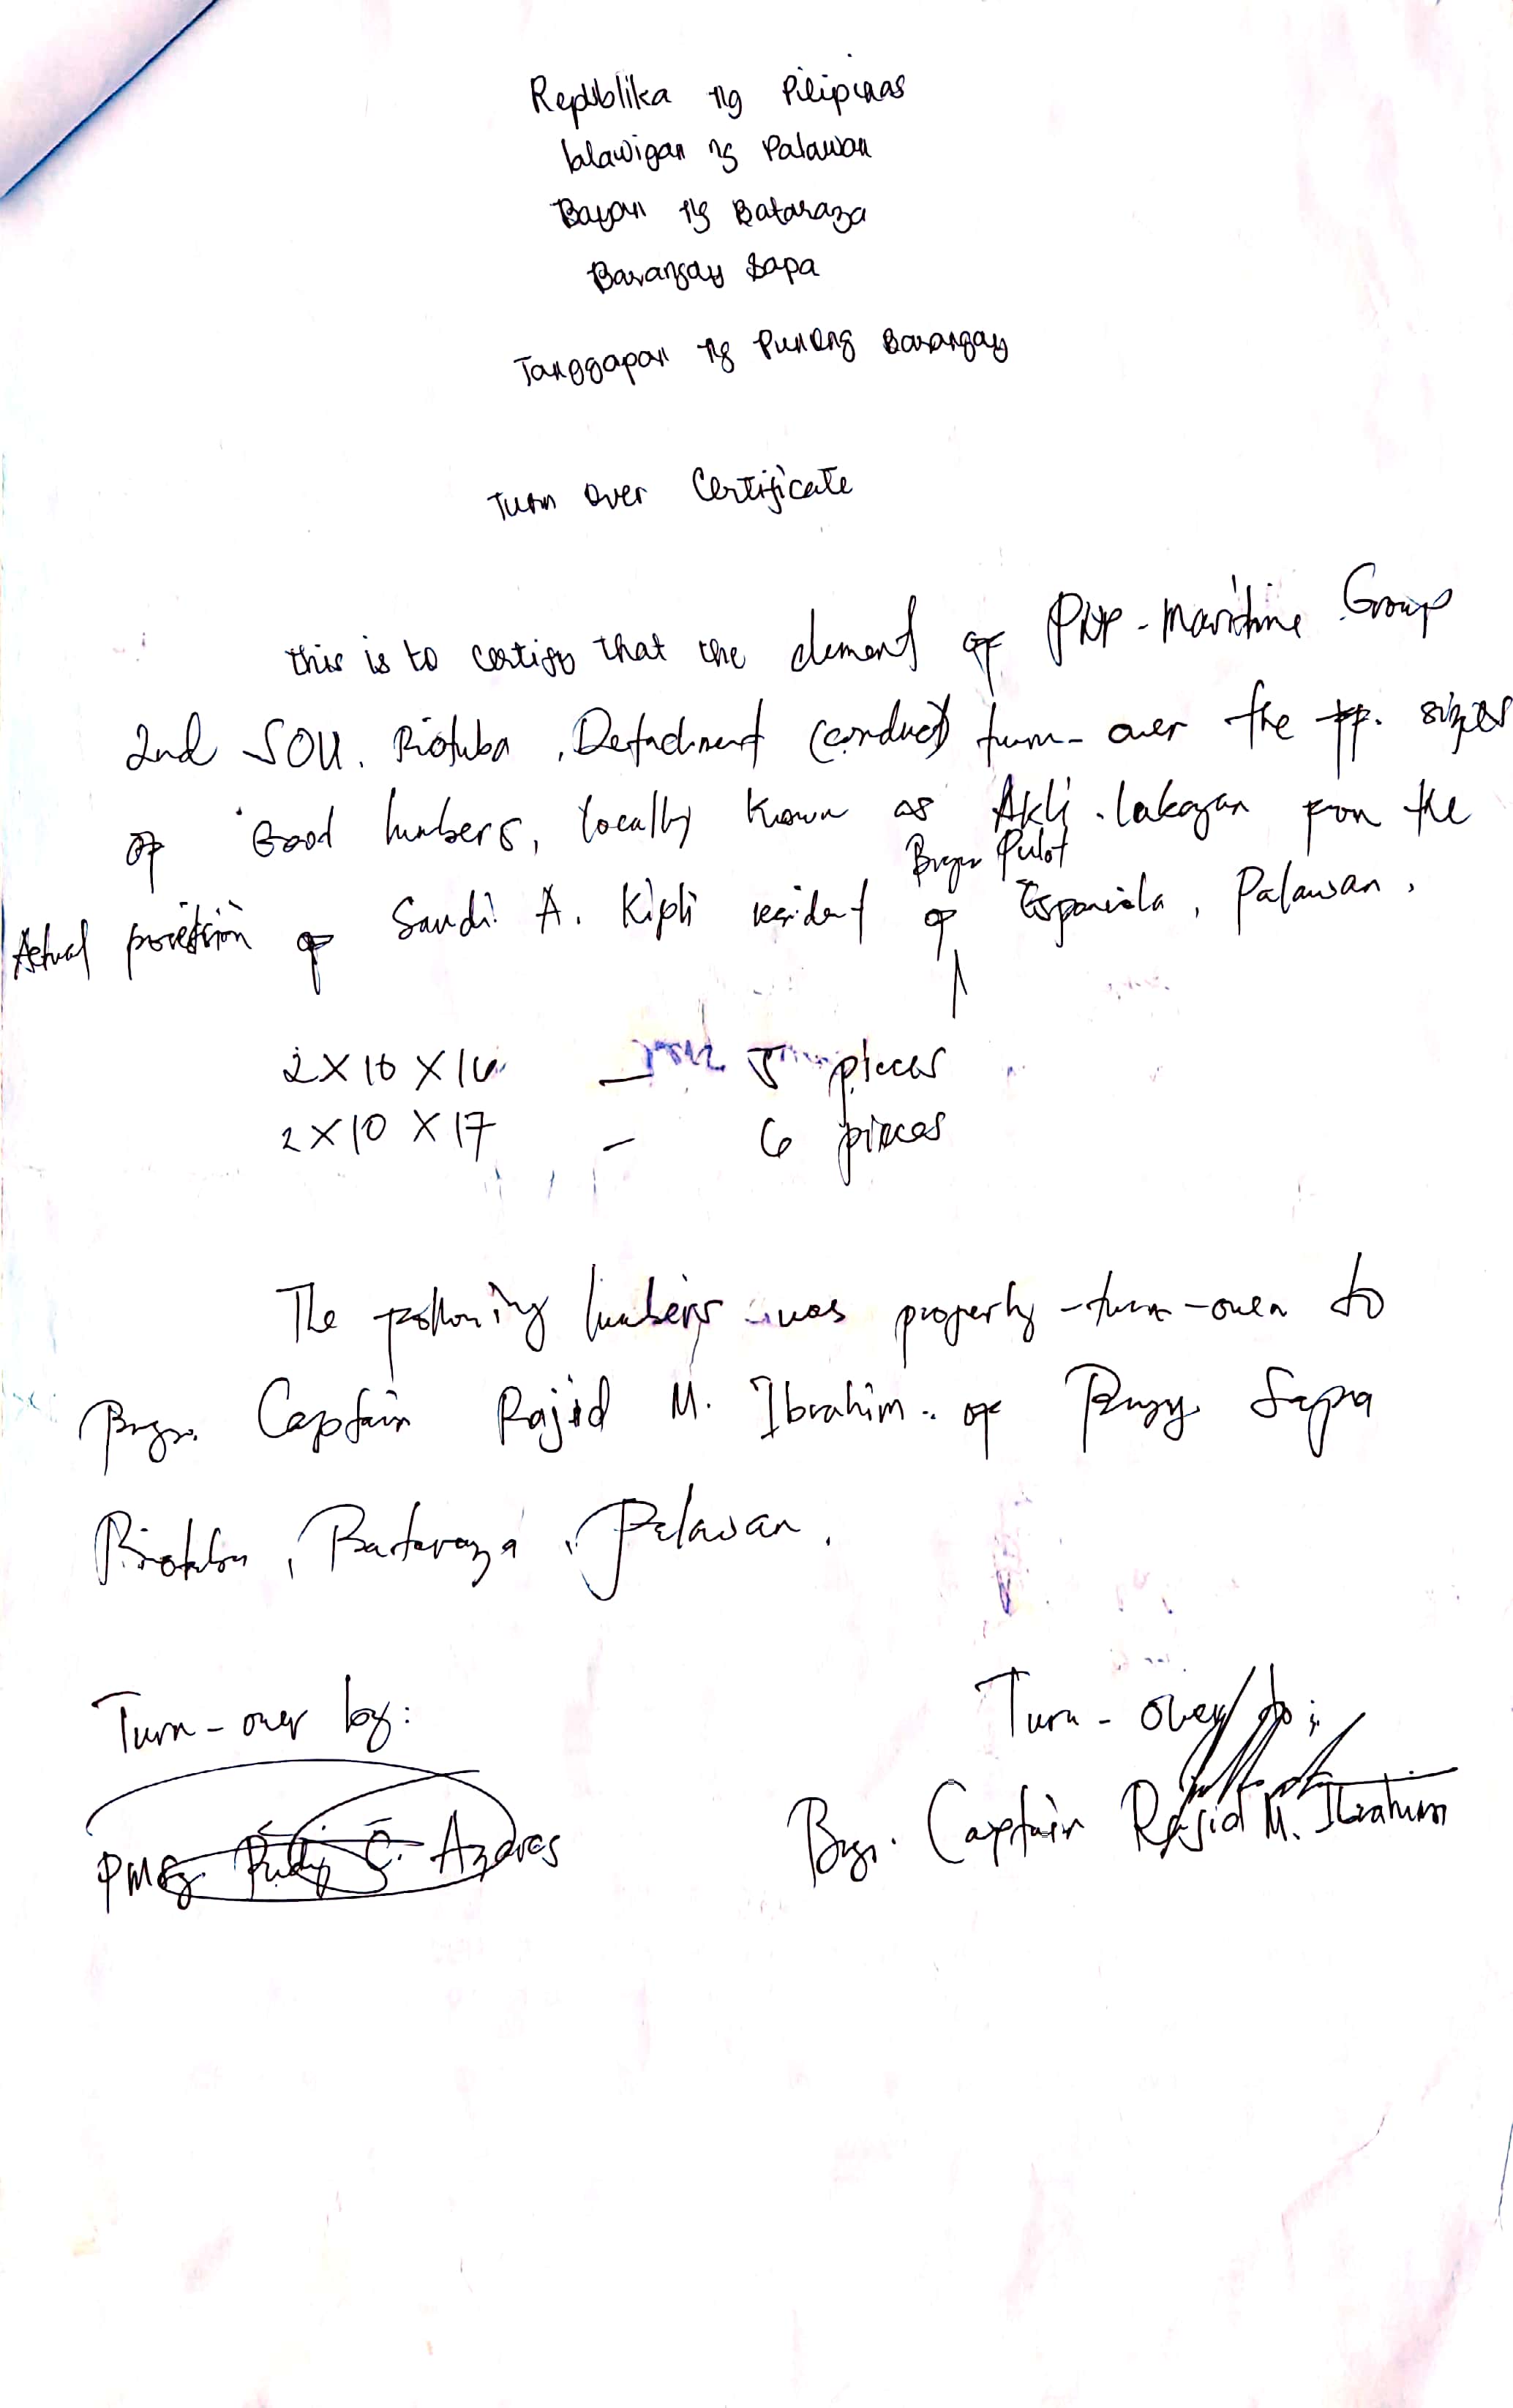 Republika ng Pilipinas
lalawigan ng Palawan
Bayan ng Bataraza
Barangay Sapa
Tanggapan ng Punong Barangay
Turn Over Certificate
this is to certify that the element of PNP-Maritime Group
2nd SOU. Riotuba, Detachment (conduct) turn-over the ff. sizes
of Good lumbers, locally known as Akli. lakayan from the
Brgy. Pulot
Actual possession of Saudi A. Kipli resident of Espaniola, Palawan.
2 X 10 X 16 - 5 pieces
2 X 10 X 17 - 6 pieces
The following lumbers was properly -turn-over to
Brgy. Captain Rajid M. Ibrahim. of Brgy. Sapa
Riotuba, Bataraza, Palawan.
Turn-over by: Turn-over to:
PMSg Rudy C. Azares Brgy. Captain Rajid M. Ibrahim